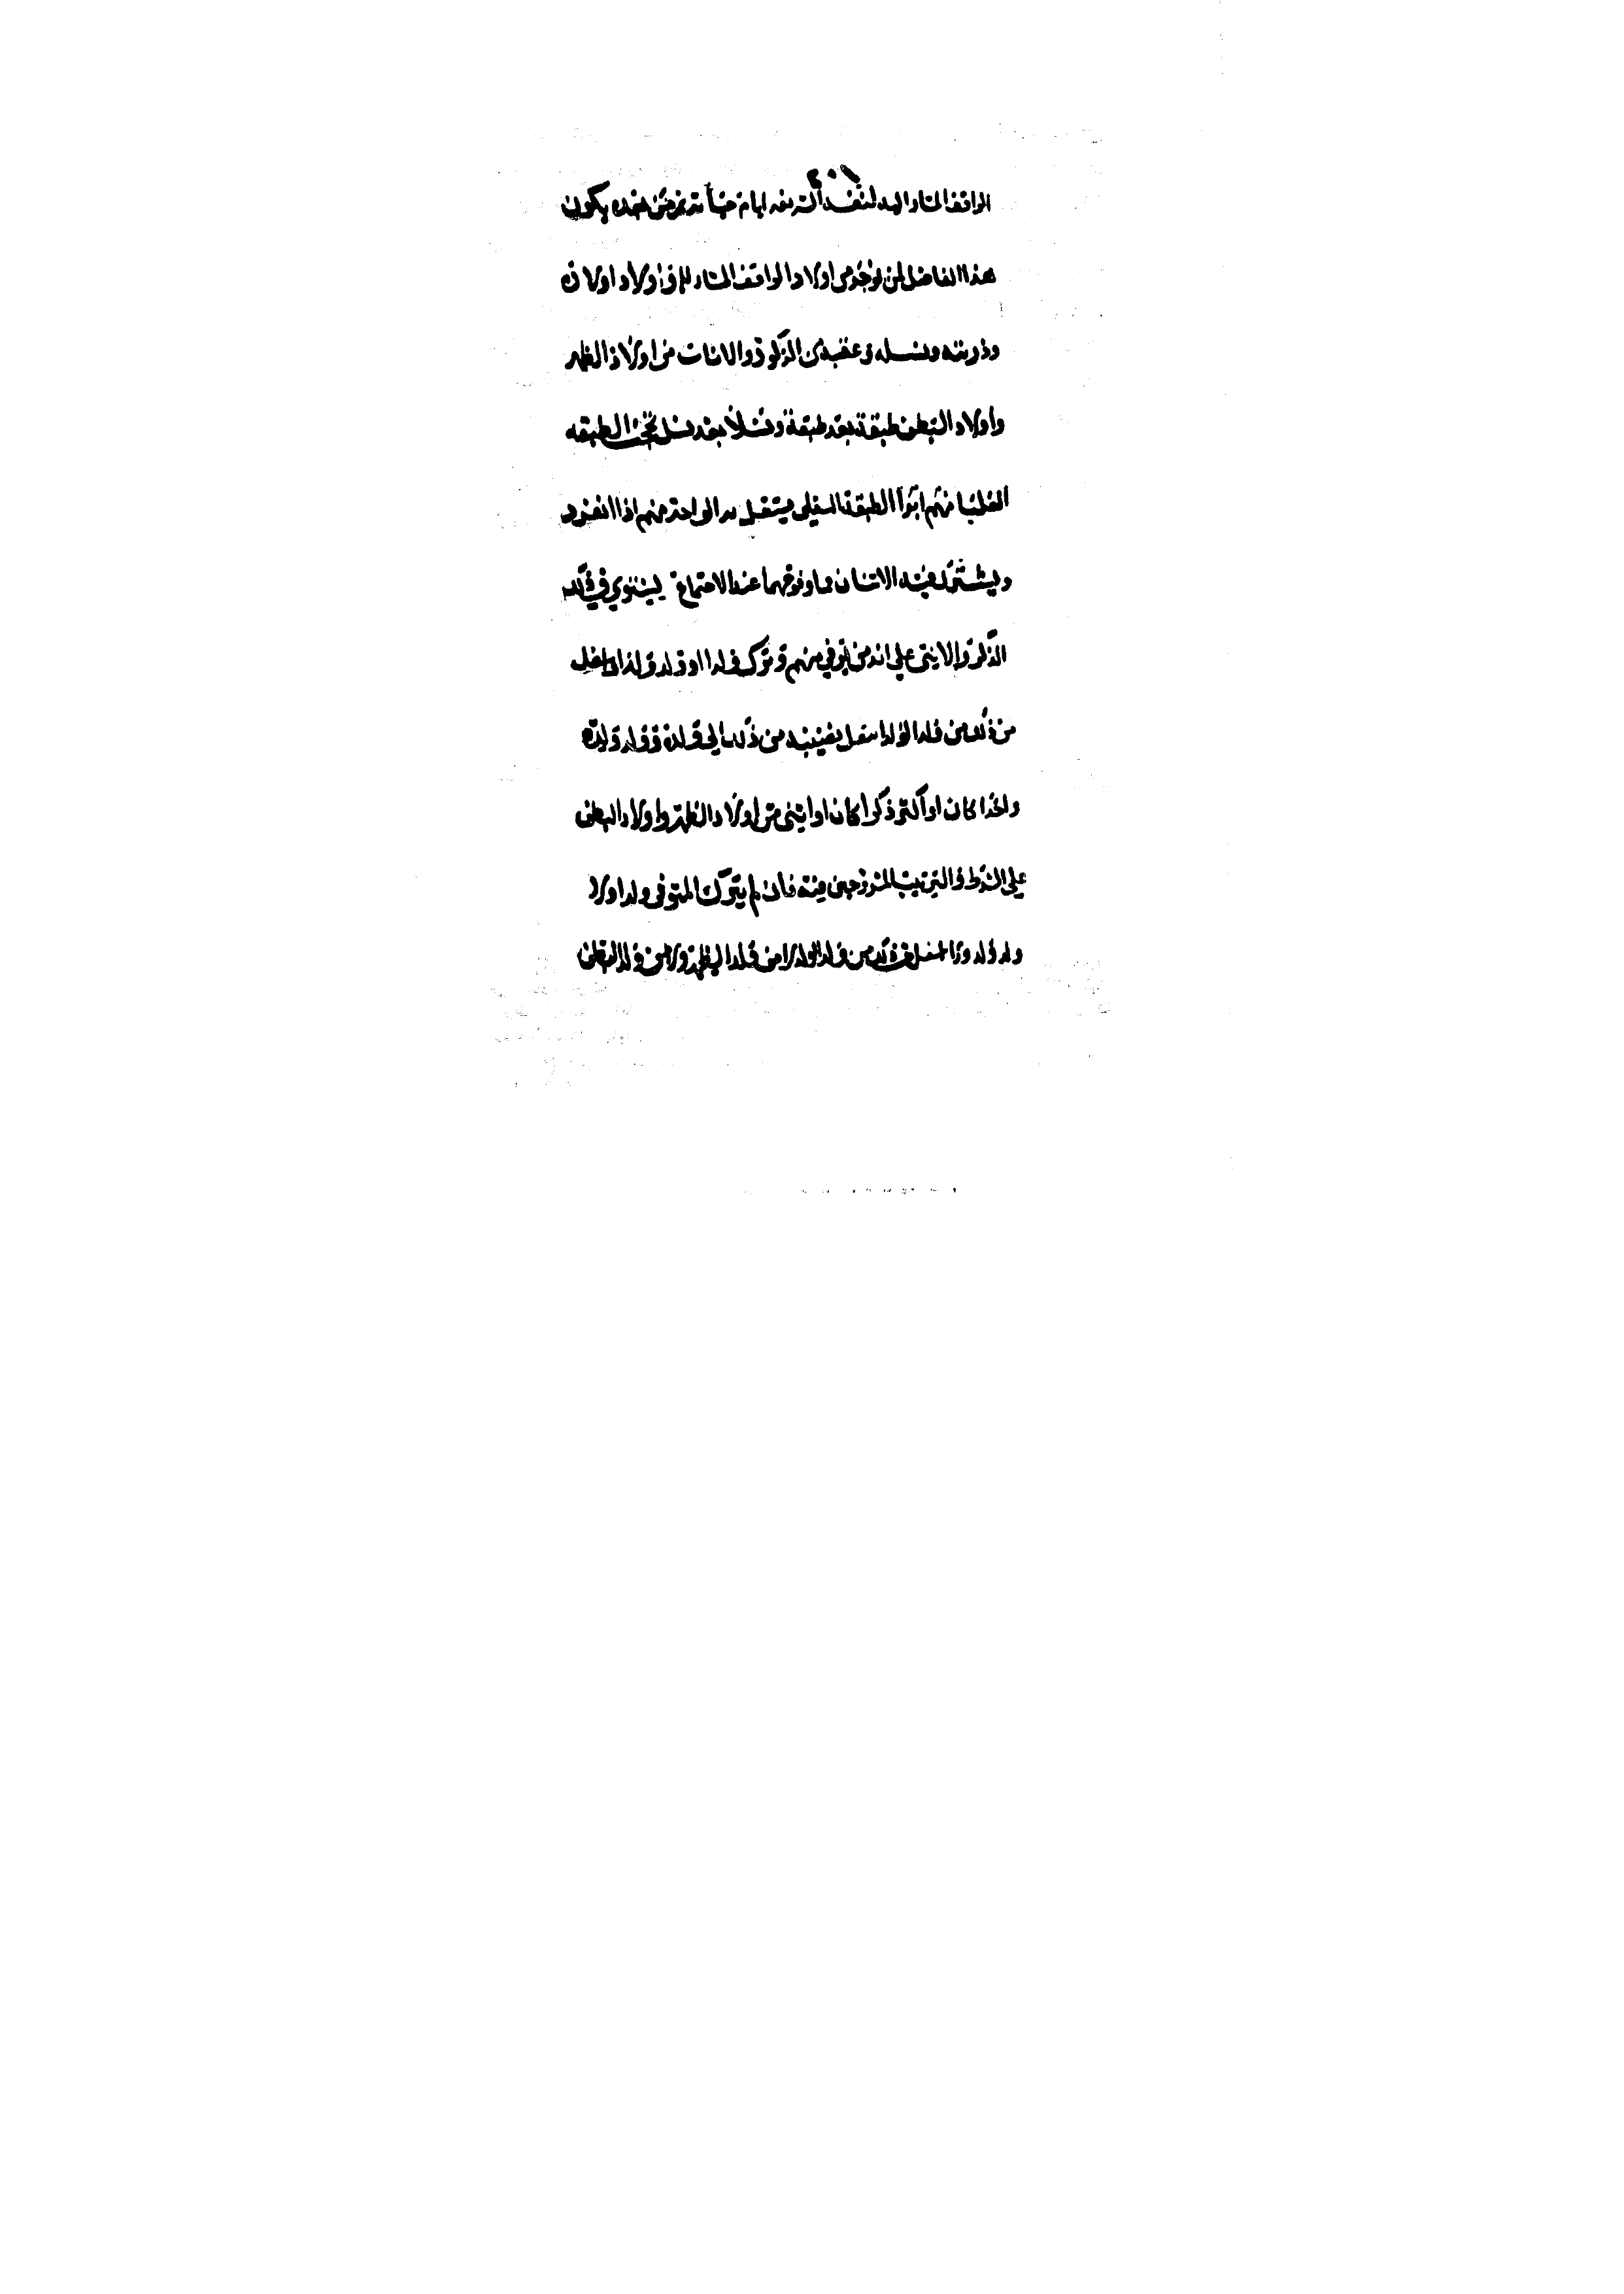 ٢٠١
الواقف المشار اليه لنفسه الشريفه ايام حياته ثم من بعده يكون
هذا الفاضل لمن يوجد من اولاد الواقف المشار اليه واولاد اولاده
وذريته ونسله وعقبه من الذكور والاناث من اولاد الظهر
واولاد البطن طبقة بعد طبقة ونسلا بعد نسل تحجب الطبقه
العليا منهم ابدا الطبقة السفلى يستقل به الواحد منهم اذا انفرد
ويشترك فيه الاثنان فما فوقهما عند الاجتماع يستوي في ذلك
الذكر والانثى على انه من توفي منهم وترك ولدا او ولد ولد او اسفل
من ذلك من ولد الولد انتقل نصيبه من ذلك الى ولده وولد ولده
واحدا كان او اكثر ذكرا كان او انثى من اولاد الظهر واولاد البطن
على الشرط والترتيب المشروحين فيه فان لم يترك المتوفى ولدا ولا
ولد ولد ولا اسفل من ذلك من ولد الولد لا من ولد الظهر ولا من ولد البطن